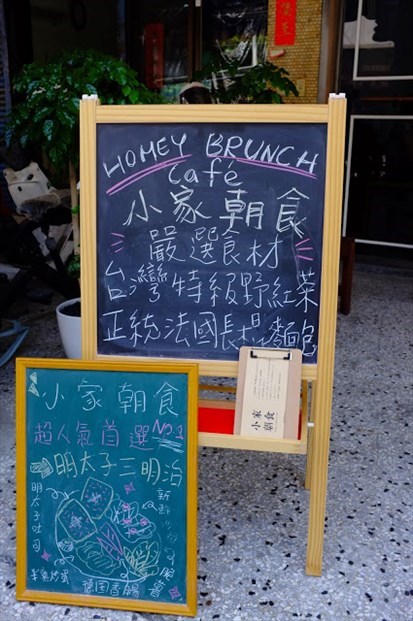 HOMEY BRUNCH
Café
小家朝食
嚴選食材
台灣特級野紅菜
正統法國長棍麵包
小家朝食
小家朝食
超人氣首選No.1
明太子三明治
明太子吐司
新鮮
半熟炒蛋
德國香腸